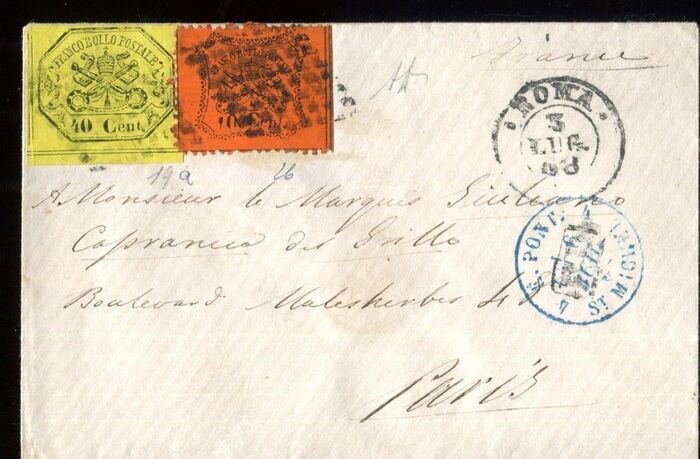 FRANCO BOLLO POSTALE
40 Cent.
10 Cent.
France
ROMA
3
LUG
68
19a
26
A Monsieur le Marquis Giuliano
Capranica del Grillo
Boulevard Malesherbes 4
Paris
E. PONT.
ST MICH